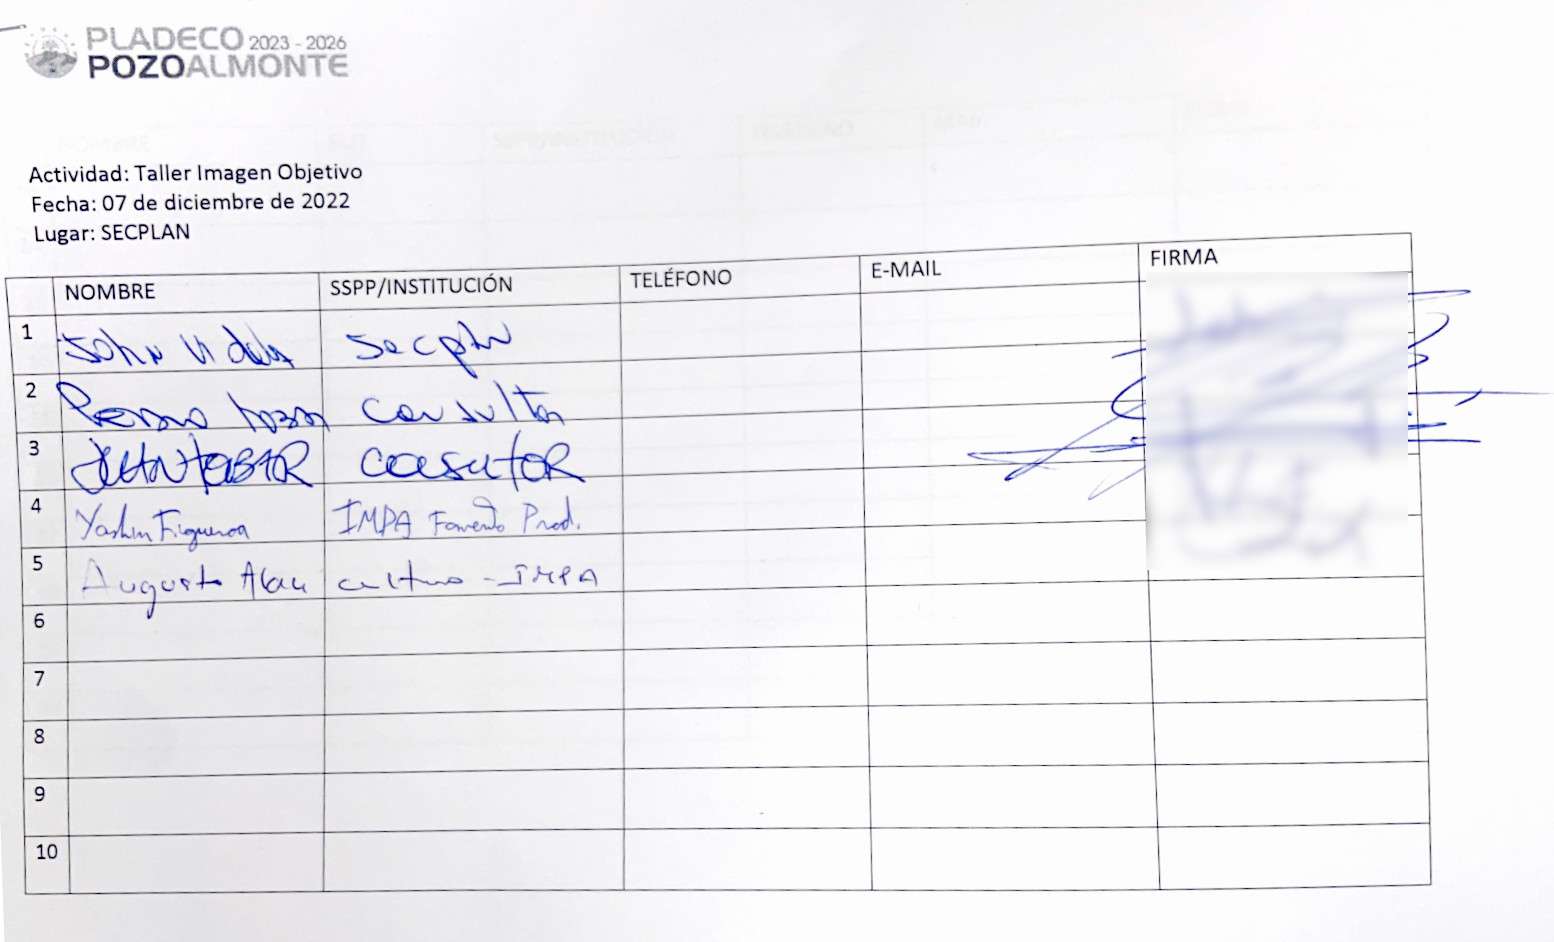 PLADECO 2023 - 2026
POZOALMONTE
Actividad: Taller Imagen Objetivo
Fecha: 07 de diciembre de 2022
Lugar: SECPLAN
NOMBRE SSPP/INSTITUCIÓN TELÉFONO E-MAIL FIRMA
1 John Videla Secpln
2 Consultor
3 consutor
4 Yashin Figueroa IMPA Fomento Prod.
5 Augusto cultura - IMPA
6
7
8
9
10